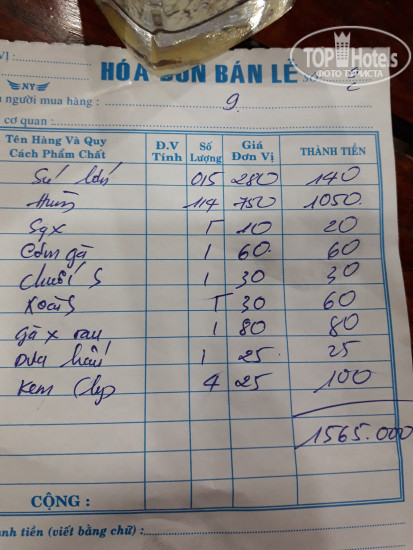 TOP Hotels
ФОТО ТУРИСТА
VỊ :
HÓA ĐƠN BÁN LẺ SỐ
NY
người mua hàng : 9.
cơ quan :
Tên Hàng Và Quy Cách Phẩm Chất Đ.V Tính Số Lượng Giá Đơn Vị THÀNH TIỀN
015 280 140
114 750 1050
10 20
Cơm gà 1 60 60
Chuối S 1 30 30
30 60
gà x rau 1 80 80
Dưa hấu 1 25 25
Kem 4 25 100
1565.000
CỘNG :
ành tiền (viết bằng chữ) :